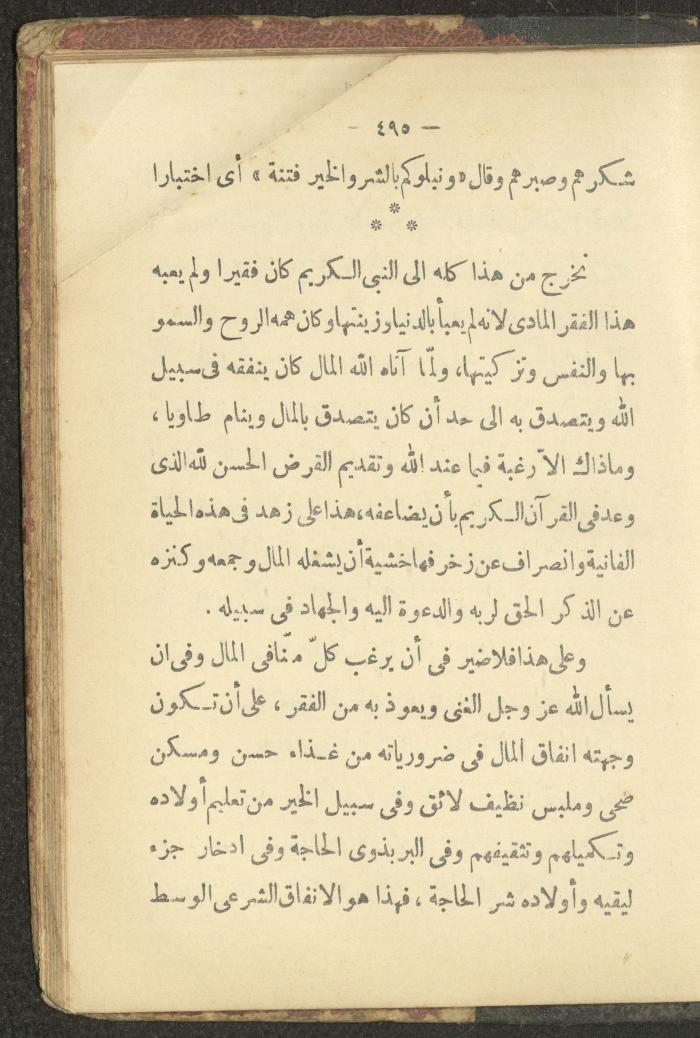 — ٤٩٥ —
شكرهم وصبرهم وقال «ونبلوكم بالشر والخير فتنة» أى اختبارا
* * *
نخرج من هذا كله الى النبى الكريم كان فقيرا ولم يعبه
هذا الفقر المادى لانه لم يعبأ بالدنيا وزينتها وكان همه الروح والسمو
بها والنفس وتزكيتها، ولمّا آتاه الله المال كان ينفقه فى سبيل
الله ويتصدق به الى حد أن كان يتصدق بالمال وينام طاويا ،
وماذاك الاّ رغبة فيما عند الله وتقديم القرض الحسن لله الذى
وعد فى القرآن الكريم بأن يضاعفه، هذا على زهد فى هذه الحياة
الفانية وانصراف عن زخرفها خشية أن يشغله المال وجمعه وكنزه
عن الذكر الحق لربه والدعوة اليه والجهاد فى سبيله .
وعلى هذا فلا ضير فى أن يرغب كلّ منّا فى المال وفى ان
يسأل الله عز وجل الغنى ويعوذ به من الفقر ، على أن تكون
وجهته انفاق المال فى ضرورياته من غذاء حسن ومسكن
صحى وملبس نظيف لائق وفى سبيل الخير من تعليم أولاده
وتكميلهم وتثقيفهم وفى البر بذوى الحاجة وفى ادخار جزء
ليقيه وأولاده شر الحاجة ، فهذا هو الانفاق الشرعى الوسط